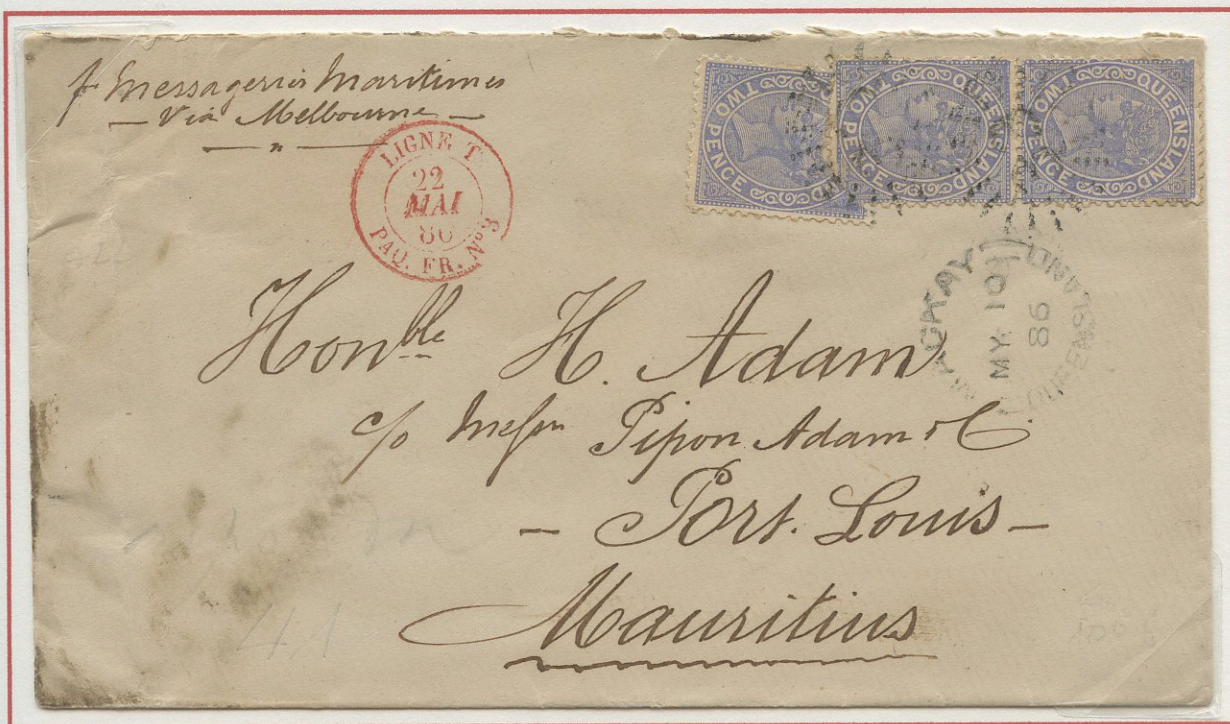 pr Messageries Maritimes
— Via Melbourne —
LIGNE T
22
MAI
86
PAQ. FR. Nº 8
TWO PENCE
QUEENSLAND
TWO PENCE
QUEENSLAND
TWO PENCE
MACKAY
MY 10
86
QUEENSLAND
Honble H. Adam
c/o Messrs Pipon Adam & C.
— Port. Louis —
Mauritius